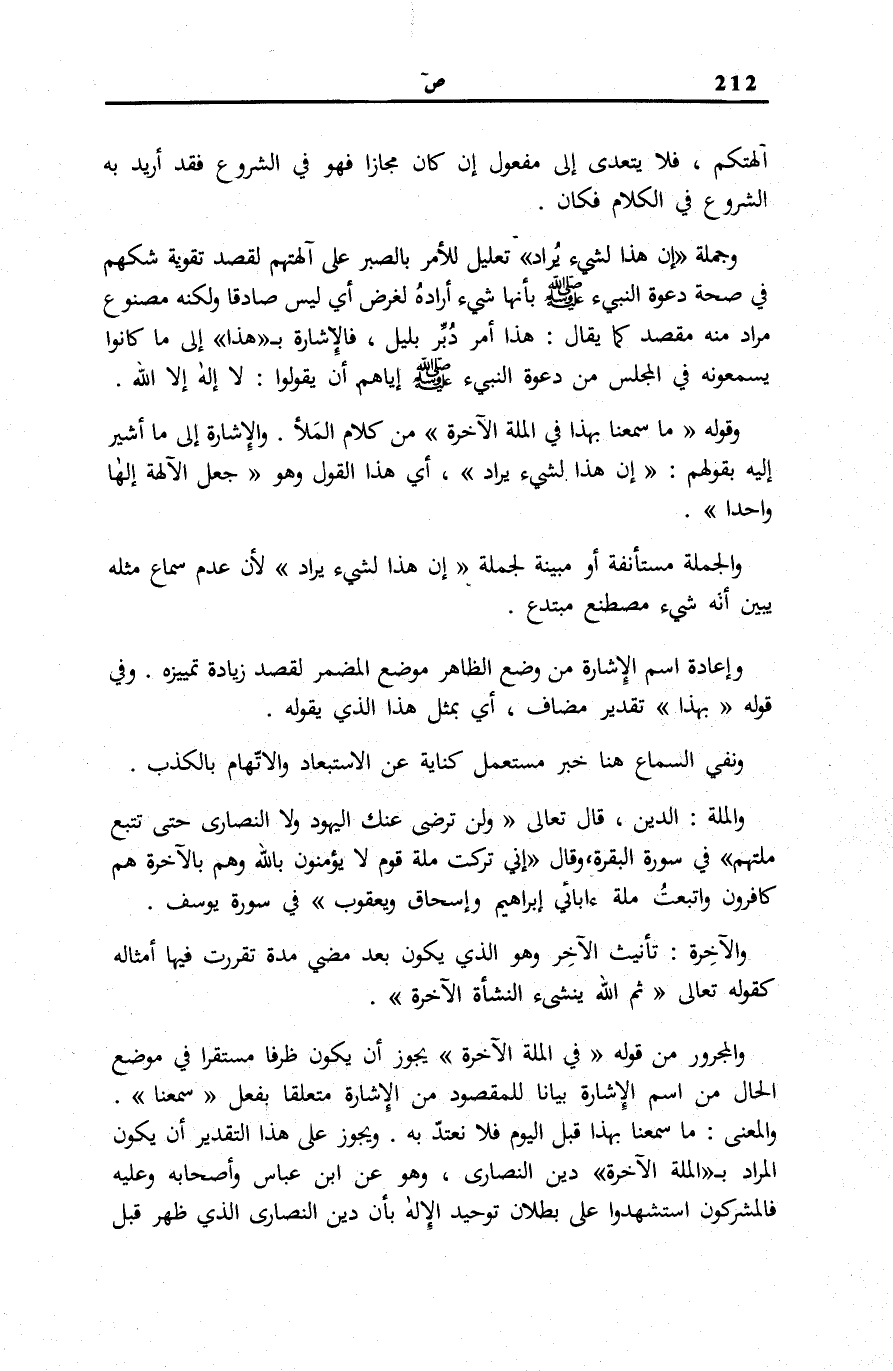 212 صٓ
آلهتكم ، فلا يتعدى إلى مفعول إن كان مجازا فهو في الشروع فقد أريد به
الشروع في الكلام فكان .
وجملة «إن هذا لشيء يُراد» تعليل للأمر بالصبر على آلهتهم لقصد تقوية شكهم
في صحة دعوة النبيء ﷺ بأنها شيء أرادهُ لغرض أي ليس صادقا ولكنه مصنوع
مراد منه مقصد كما يقال : هذا أمر دُبِّر بليل ، فالإِشارة بـ«هذا» إلى ما كانوا
يسمعونه في المجلس من دعوة النبيء ﷺ إياهم أن يقولوا : لا إلهٰ إلا الله .
وقوله « ما سمعنا بهذا في الملة الآخرة » من كلام المَلأ . والإِشارة إلى ما أشير
إليه بقولهم : « إن هذا لشيء يراد » ، أي هذا القول وهو « جعل الآلهة إلهٰا
واحدا » .
والجملة مستأنفة أو مبينة لجملة « إن هذا لشيء يراد » لأن عدم سماع مثله
يبين أنّه شيء مصطنع مبتدع .
وإعادة اسم الإِشارة من وضع الظاهر موضع المضمر لقصد زيادة تمييزه . وفي
قوله « بهذا » تقدير مضاف ، أي بمثل هذا الذي يقوله .
ونفي السماع هنا خبر مستعمل كناية عن الاستبعاد والاتّهام بالكذب .
والملة : الدين ، قال تعالى « ولن ترضى عنك اليهود ولا النصارى حتى تتبع
ملتهم» في سورة البقرة،وقال «إني تركت ملة قوم لا يؤمنون بالله وهم بالآخرة هم
كافرون واتبعتُ ملة ءابائي إبراهيم وإسحاق ويعقوب » في سورة يوسف .
والآخِرة : تأنيث الآخِر وهو الذي يكون بعد مضي مدة تقررت فيها أمثاله
كقوله تعالى « ثم الله ينشىء النشأة الآخرة » .
والمجرور من قوله « في الملة الآخرة » يجوز أن يكون ظرفا مستقرا في موضع
الحال من اسم الإِشارة بيانا للمقصود من الإِشارة متعلقا بفعل « سمعنا » .
والمعنى : ما سمعنا بهذا قبل اليوم فلا نعتدّ به . ويجوز على هذا التقدير أن يكون
المراد بـ«الملة الآخرة» دين النصارى ، وهو عن ابن عباس وأصحابه وعليه
فالمشركون استشهدوا على بطلان توحيد الإِلهٰ بأن دين النصارى الذي ظهر قبل